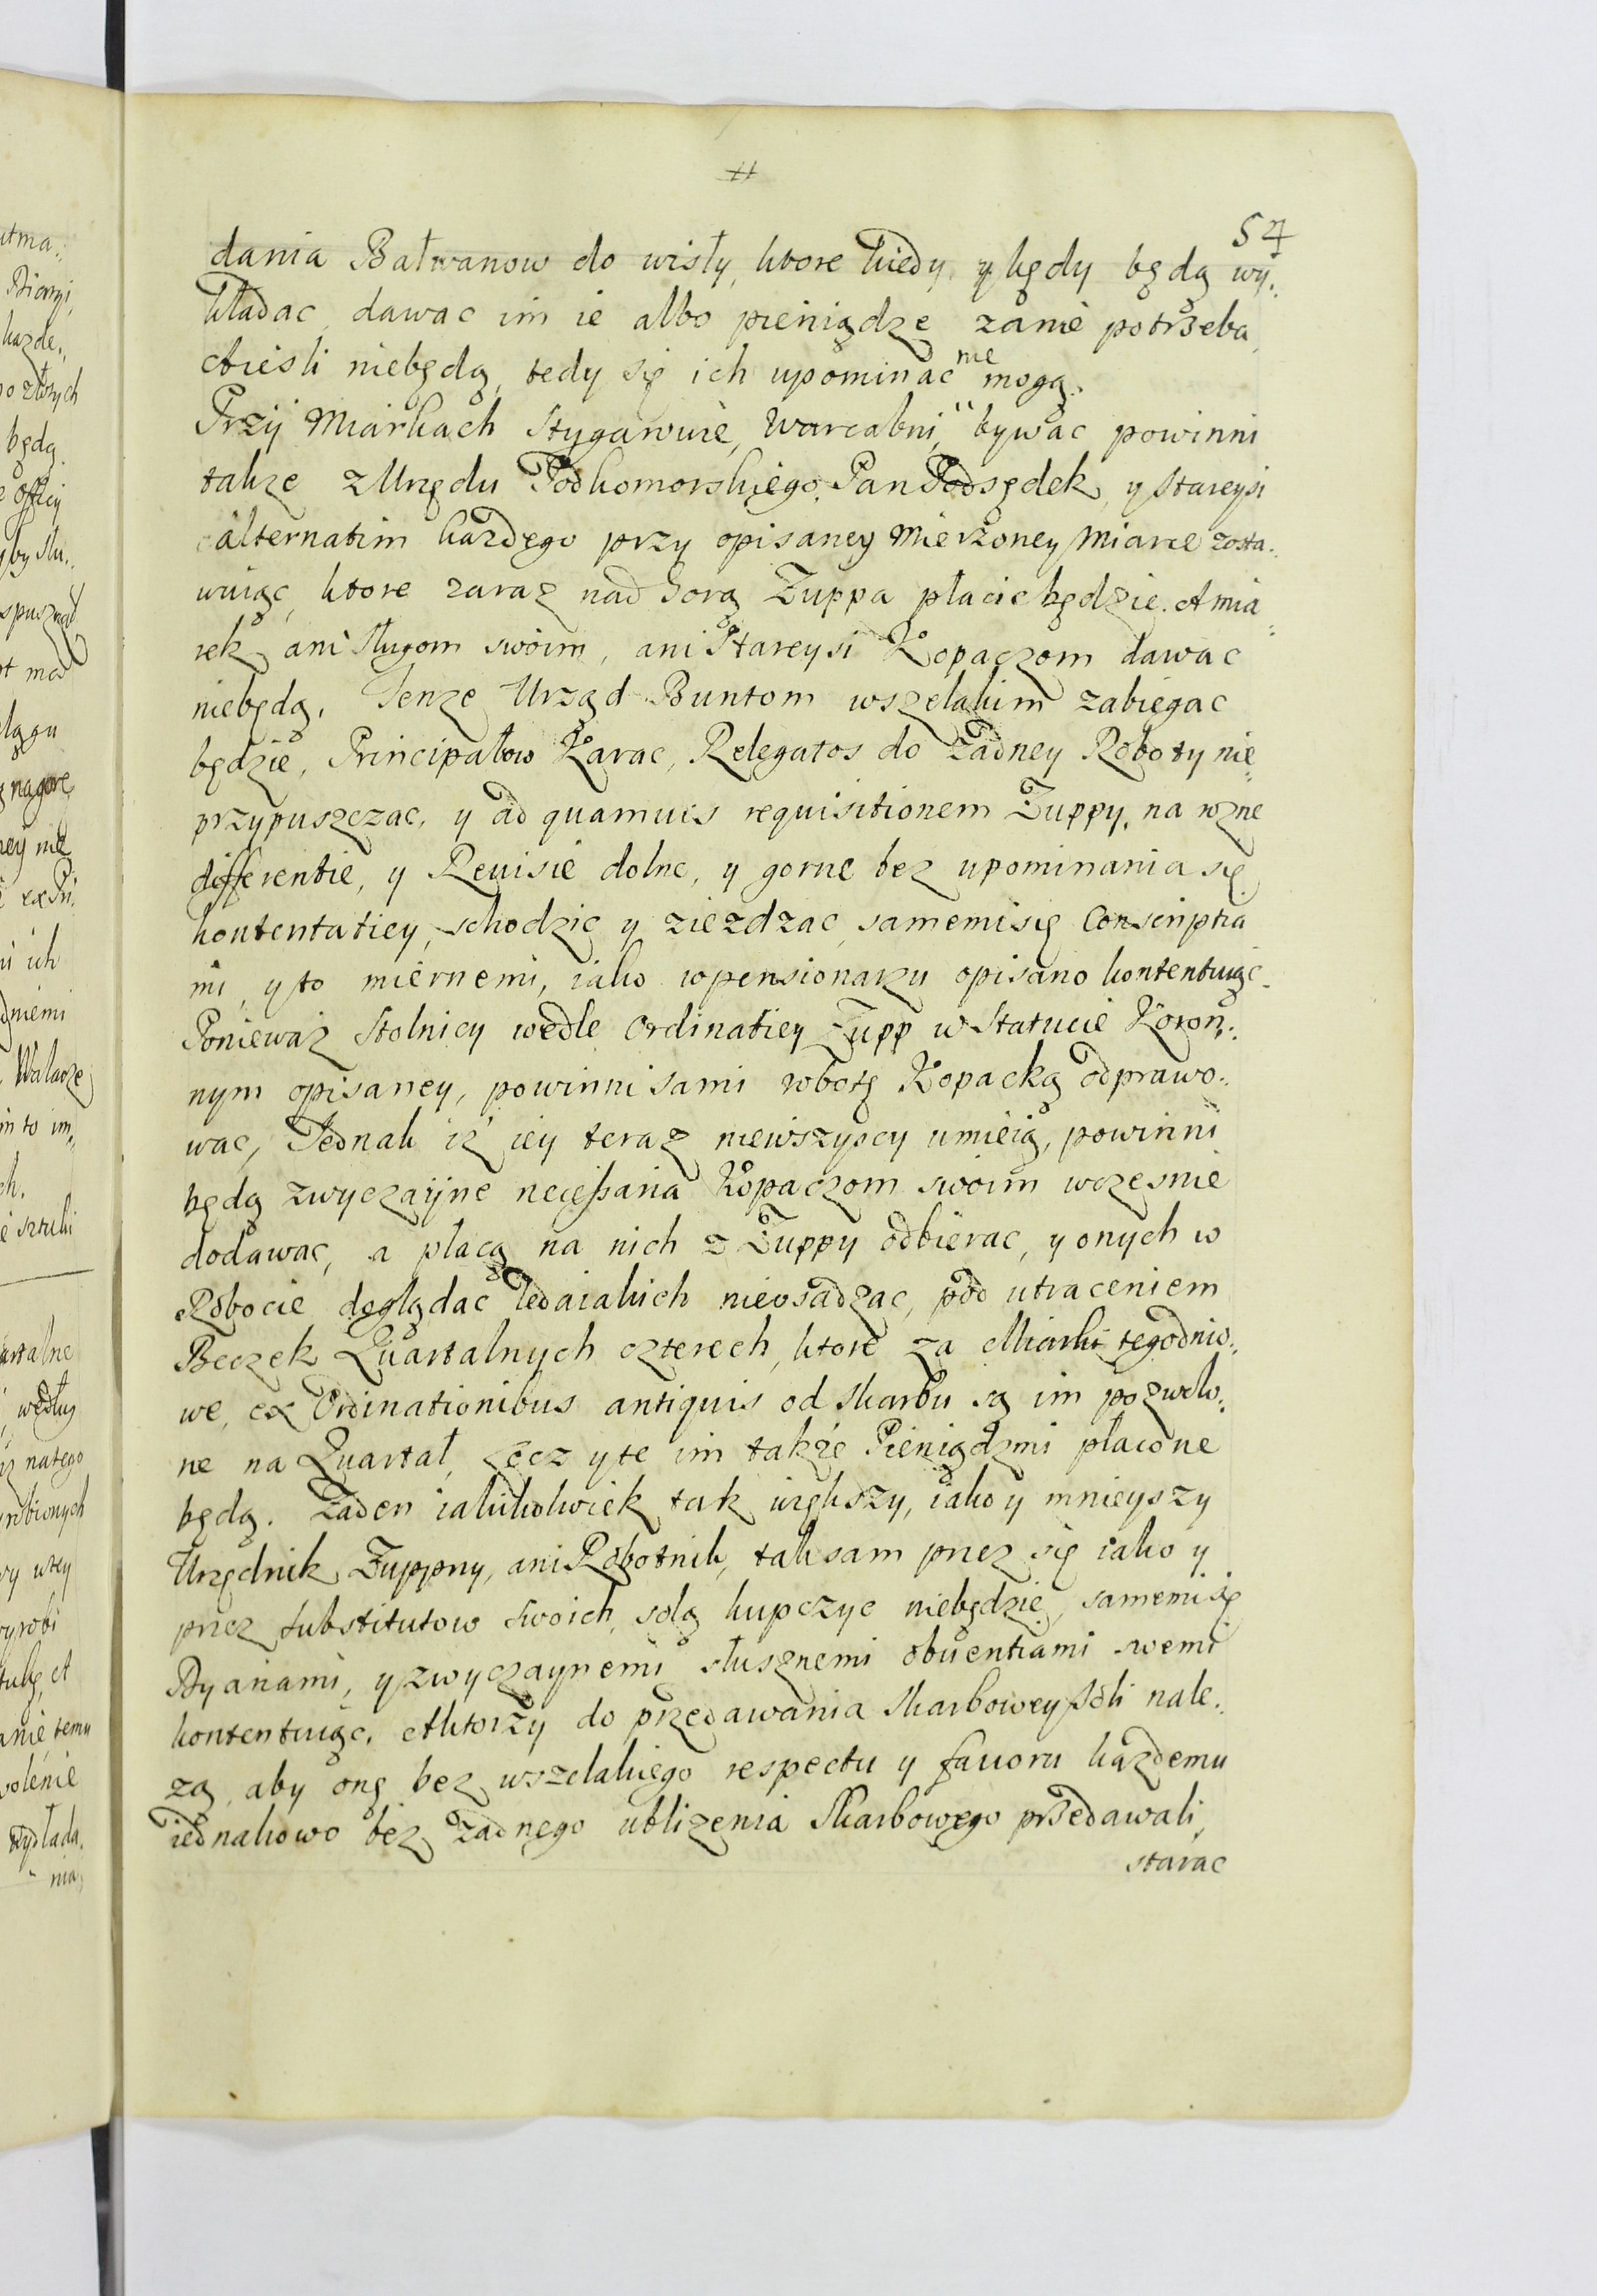 57
dania Bałwanow do wisły, ktore kiedy y kędy będą wy„
kładac, dawac im ie albo pieniądze zanie potrzeba,
A iesli niebędą, tedy się ich upominac nie mogą.
Przy Miarkach Stygarowie, Warcabni, bywac powinni
takze z Urzędu Podkomorskiego, Pan Podsędek, y Stareysi
alternatim kazdego przy opisaney Mierzoney Miarce zosta„
wuiąc, ktore zaraz nad Gorą Zuppa płacic będzie. A mia„
rek ani sługom swoim, ani Stareysi Kopaczom dawac
niebędą. Tenze Urząd Buntom wszelakim zabiegac
będzie, Principałow Karac, Relegatos do zadney Roboty nie„
przypuszczac, y ad quamuis requisitionem Zuppy, na rozne
differentie, y Reuisie dolne, y gorne bez upominania się
kontentatiey, schodzic y ziezdzac, samemi się Conscripta
mi, y to miernemi, iako w pensionarzu opisano kontentuiąc.
Poniewaz Stolnicy wedle Ordinatiey Zupp w Statucie Koron„
nym opisaney, powinni sami robotę Kopacką odprawo„
wac, Jednak iz iey teraz niewszyscy umieią, powinni
będą zwyczayne necessaria Kopaczom swoim wczesnie
dodawac, a płacą na nich z Zuppy odbierac, y onych w
Robocie doglądac ledaiakich nieosadzac, pod utraceniem
Beczek Quartalnych czterech, ktore za Miarki tegodnio„
we, ex Ordinationibus antiquis od skarbu są im pozwolo„
ne na Quartał, Lecz y te im także Pieniądzmi płacone
będą. Zaden iakikolwiek tak większy, iako y mnieyszy
Urzędnik Zuppny, ani Robotnik, tak sam przez się iako y
przez substitutow swoich, solą kupczyc niebędzie, samemi się
Dyariami, y zwyczaynemi słusznemi obuentiami swemi
kontentuiąc. A ktorzy do przedawania Skarbowey soli nale„
zą, aby onę bez wszelakiego respectu y fauoru kazdemu
iednakowo bez zadnego ublizenia Skarbowego przedawali,
starac